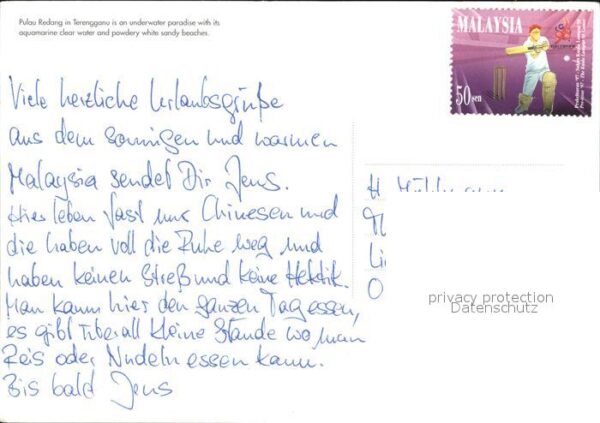 Pulau Redang in Terengganu is an underwater paradise with its
aquamarine clear water and powdery white sandy beaches.
MALAYSIA
50 sen
Viele herzliche Urlaubsgrüße
aus dem sonnigen und warmen
Malaysia sendet Dir Jens.
Hier leben fast nur Chinesen und
die haben voll die Ruhe weg und
haben keinen Streß und keine Hektik.
Man kann hier den ganzen Tag essen,
es gibt überall kleine Stände wo man
Reis oder Nudeln essen kann.
Bis bald Jens
H.
O
privacy protection
Datenschutz